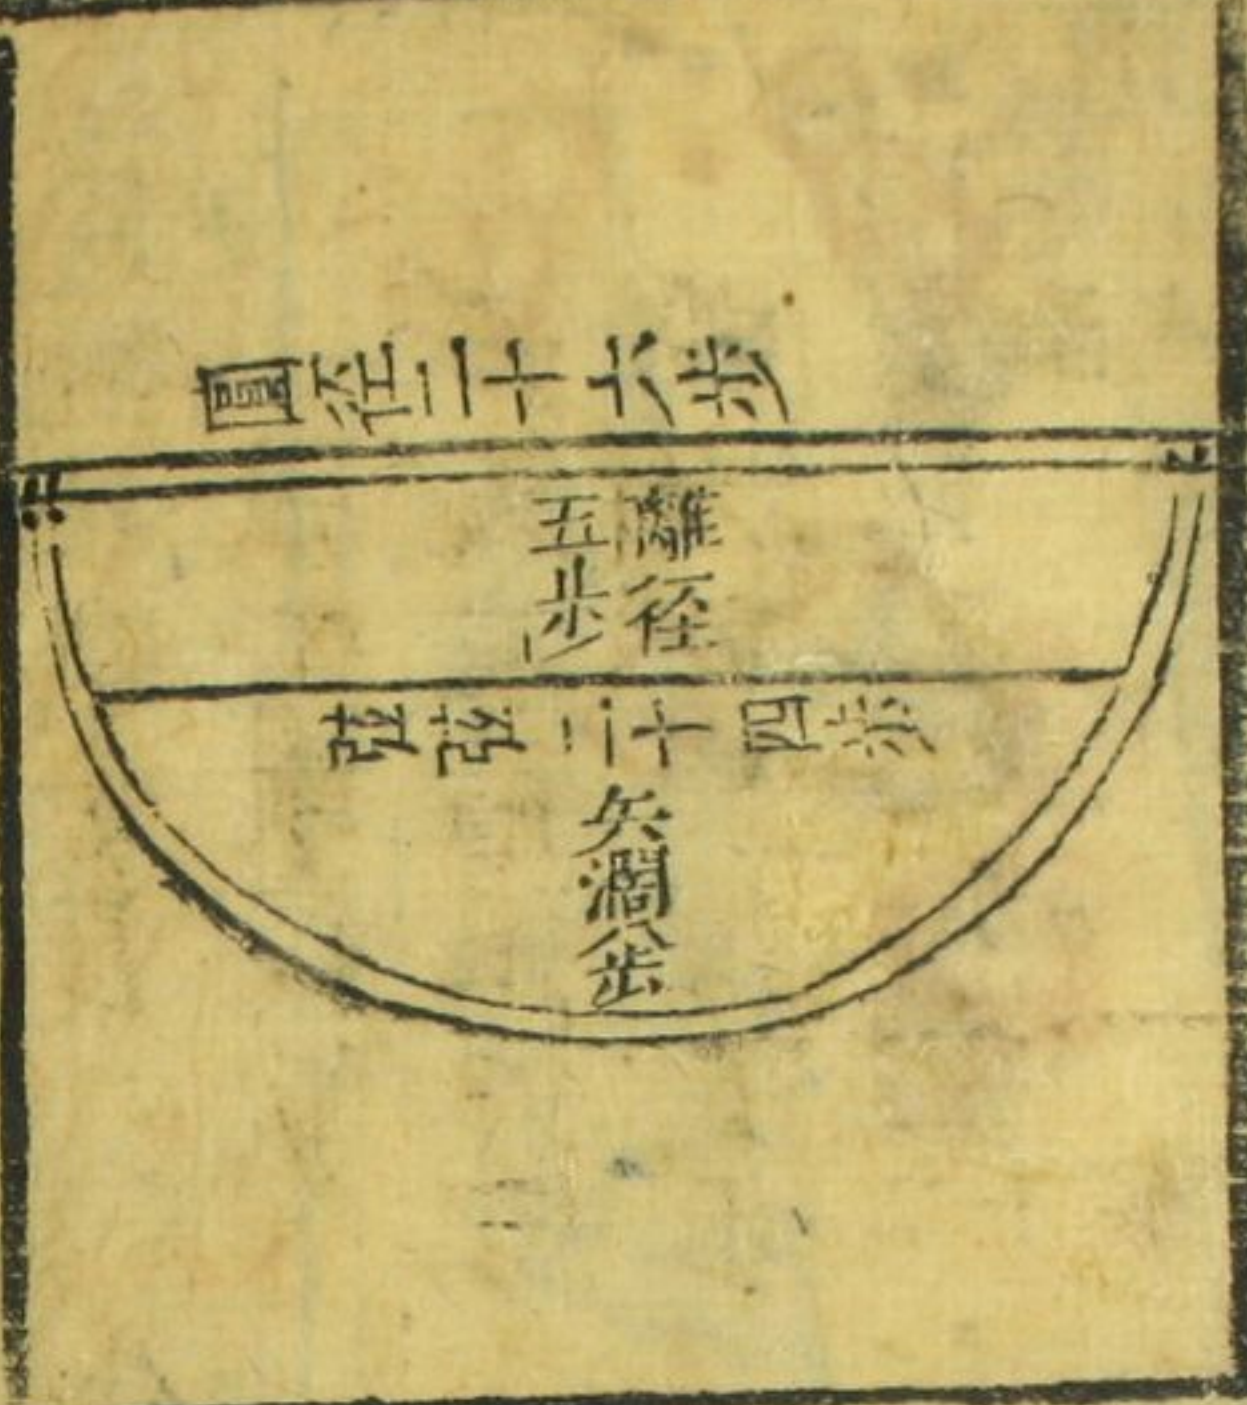 圓径二十六步
離径
五步
弦弦二十四步
矢濶八步